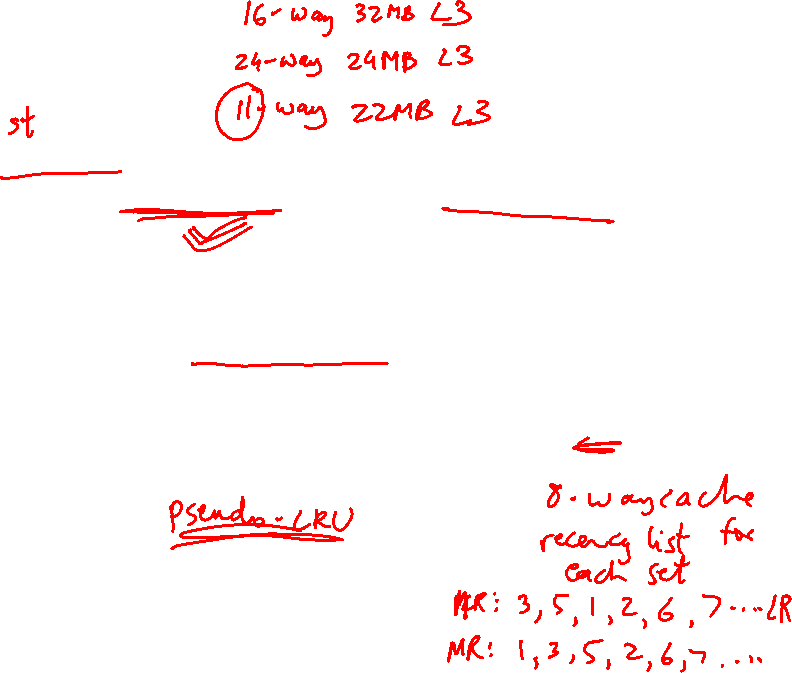 16-way 32MB L3
24-way 24MB L3
11-way 22MB L3
st
Pseudo-LRU
8-way cache
recency list for
each set
MR: 3, 5, 1, 2, 6, 7 .... LR
MR: 1, 3, 5, 2, 6, 7, ....